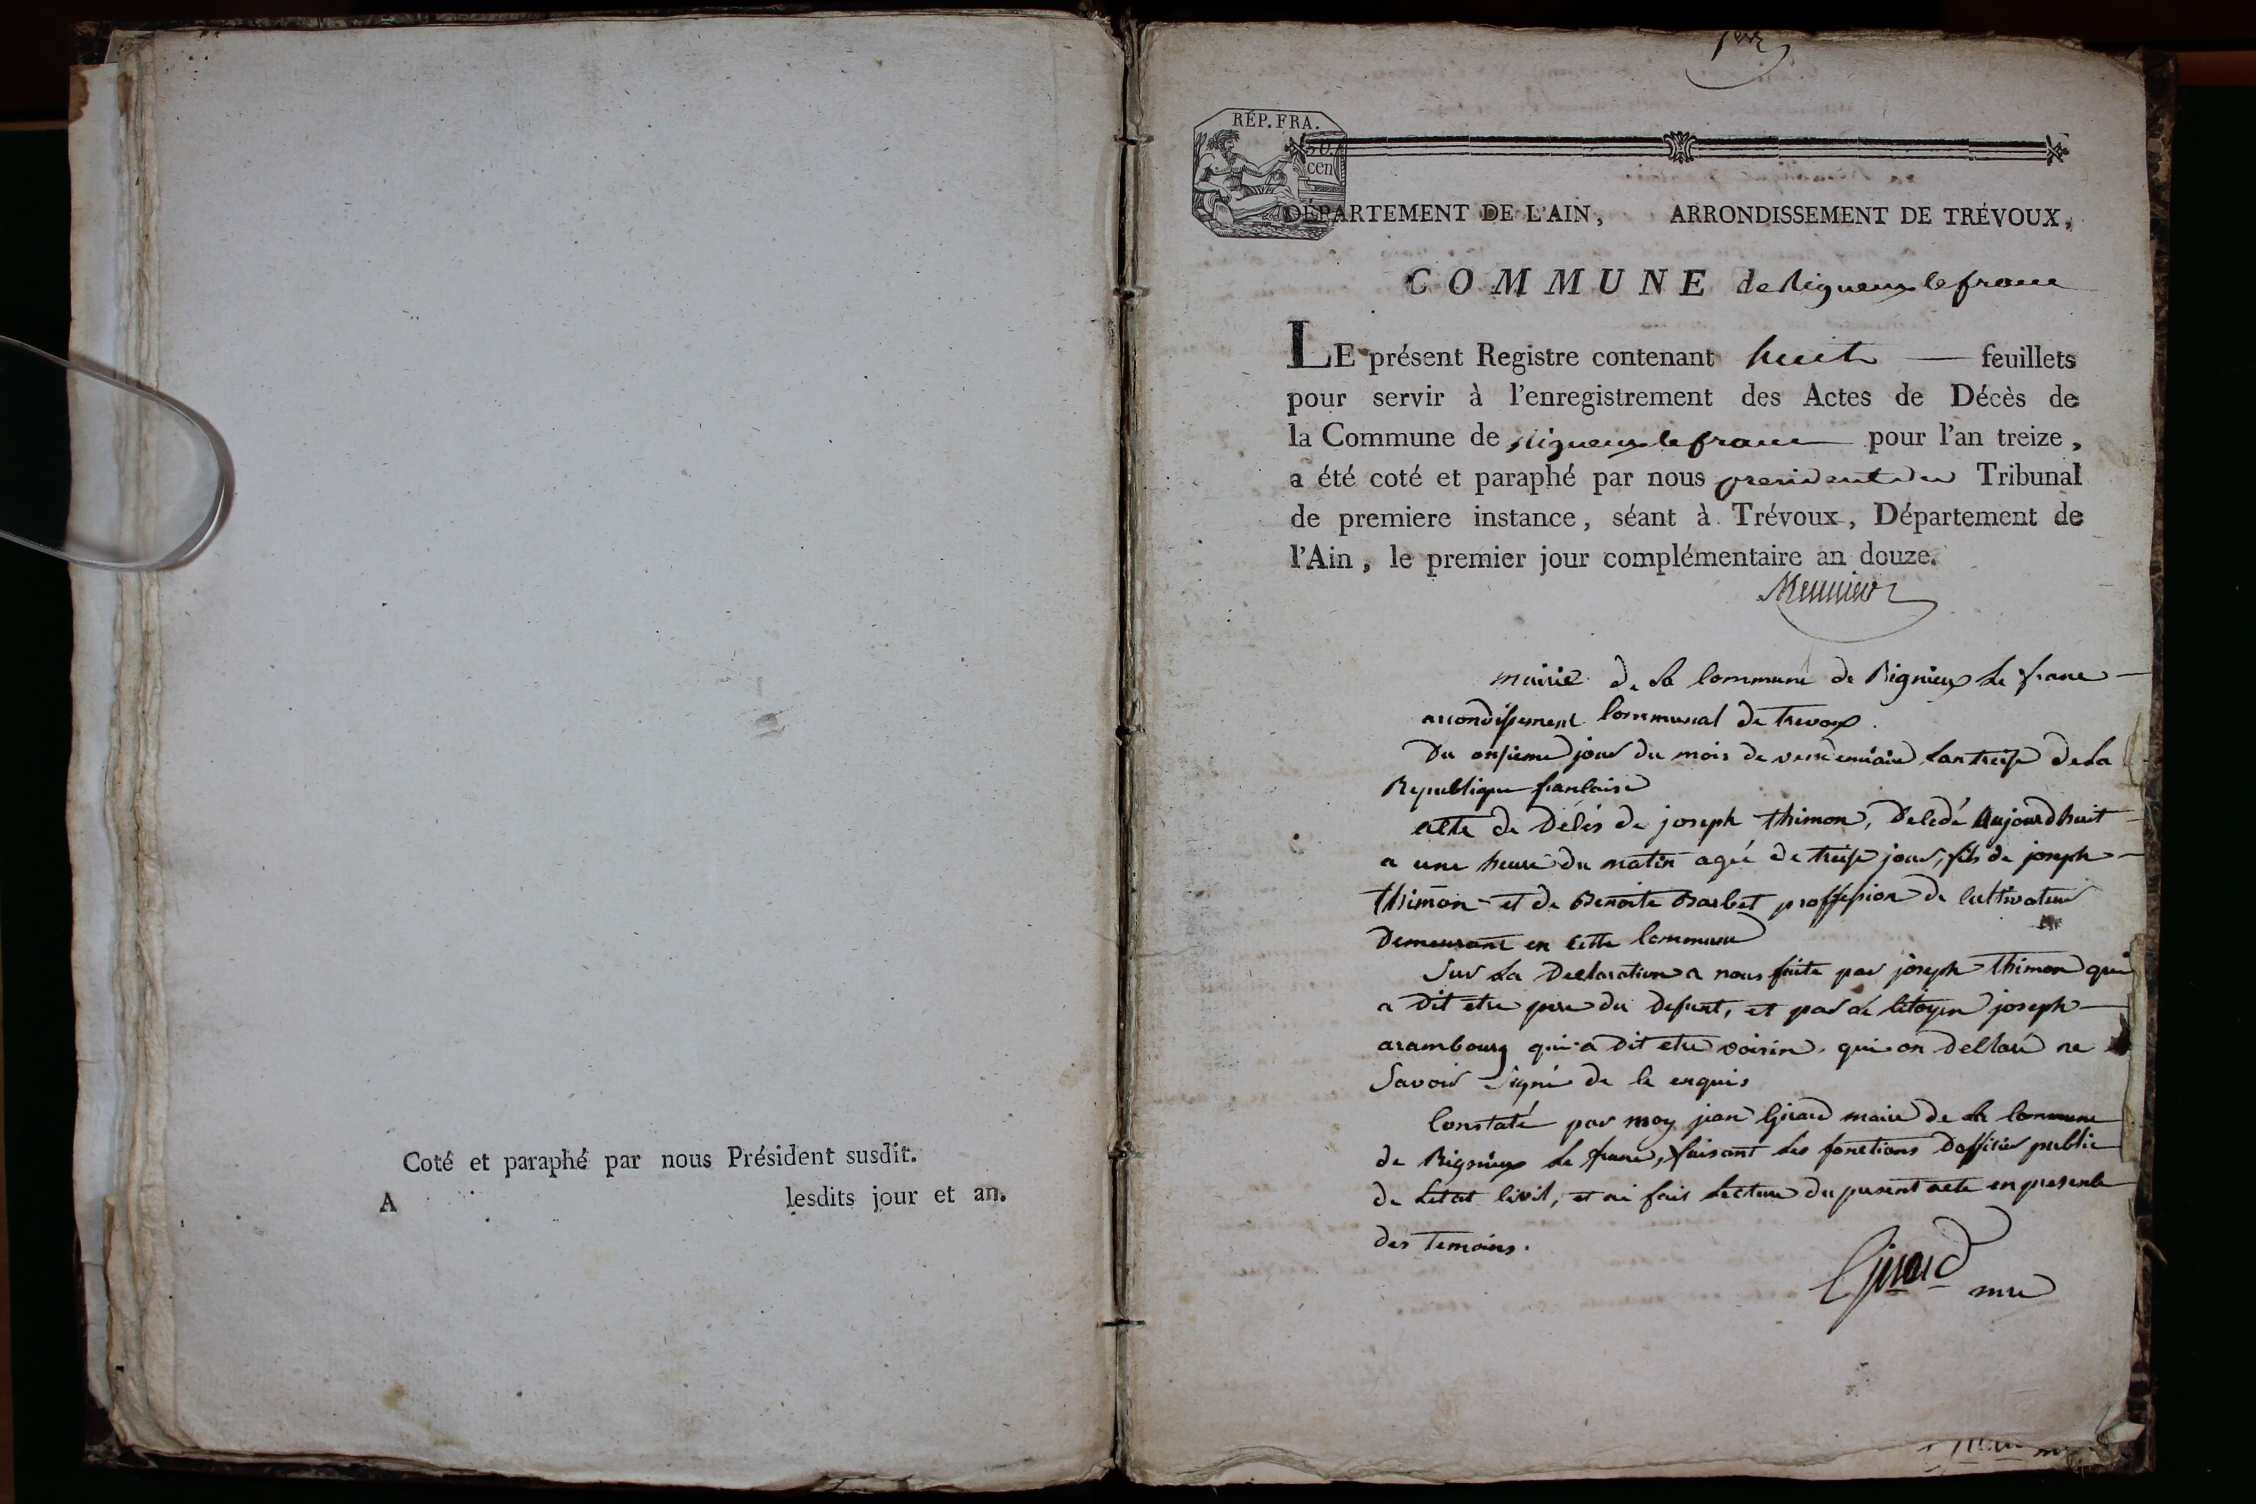 Coté et paraphé par nous Président susdit.
A lesdits jour et an.
1er
RÉP. FRA.
50
cen
DÉPARTEMENT DE L'AIN, ARRONDISSEMENT DE TRÉVOUX,
COMMUNE de Rigneux le franc
LE présent Registre contenant huit feuillets
pour servir à l'enregistrement des Actes de Décès de
la Commune de Rigneux le franc pour l'an treize,
a été coté et paraphé par nous president du Tribunal
de premiere instance, séant à Trévoux, Département de
l'Ain, le premier jour complémentaire an douze.
Meunier
mairie de la Commune de Rignieux Le franc
arrondissement Communal de Trevoux.
Du onzieme jour du mois de vendemiaire Lan treize de La
Republique francaise
acte de Décés de joseph thimon, Decedé Aujourdhuit
a une heure du matin ageé de treize jour, fils de joseph
thimon et de Benoite Barbet proffession de Cultivateur
Demeurant en Cette Commune
Sur La Declaration a nous faite par joseph thimon qui
a Dit etre pere du Defunt, et par Le Citoyen joseph
arambourg qui a Dit etre voisin, qui on Declaré ne
Savoir Signé de Ce enquis
Constaté par moy jean Girard maire de La Commune
de Rignieux Le franc, faisant Les fonctions D'officier public
de Letat Civil, et ai fait Lecture du present acte en presence
des Temoins.
Girard mre